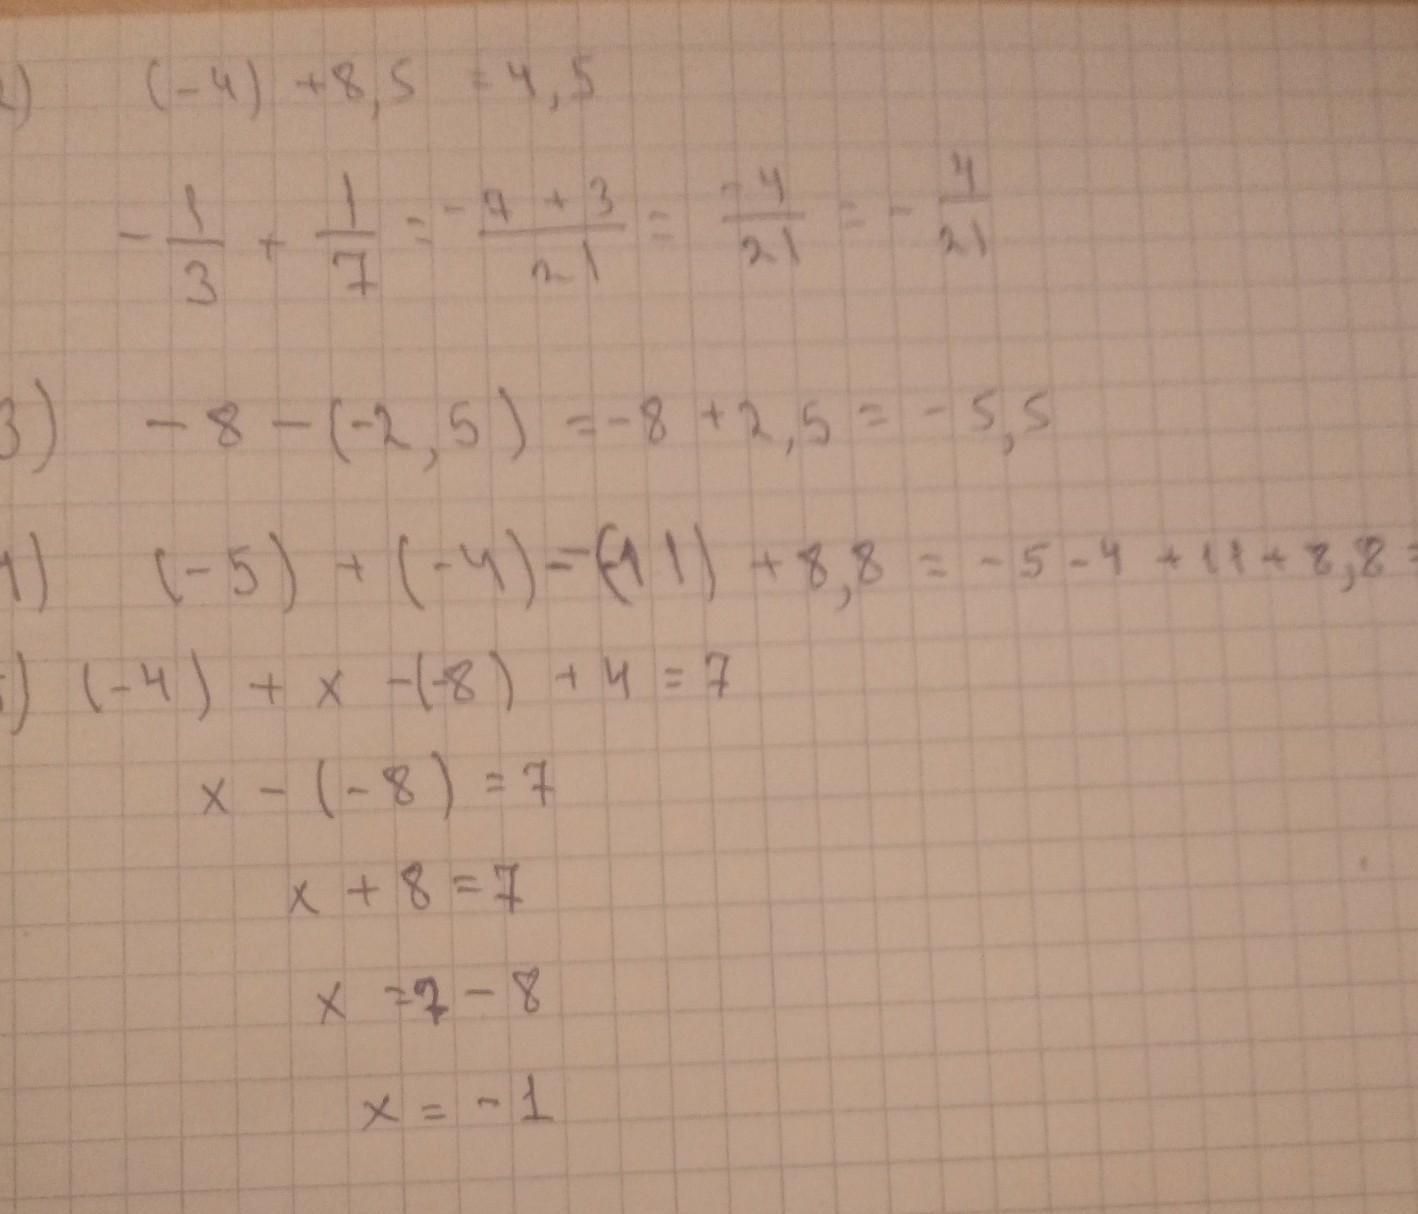 2) (-4) +8,5 = 4,5
-1/3 + 1/7 = -7+3/21 = -4/21 = -4/21
3) -8-(-2,5) = -8+2,5 = -5,5
4) (-5) + (-4) - (-11) + 8,8 = -5-4 +11+8,8 =
5) (-4) + x -(-8) + 4 = 7
x - (-8) = 7
x + 8 = 7
x = 7 - 8
x = -1